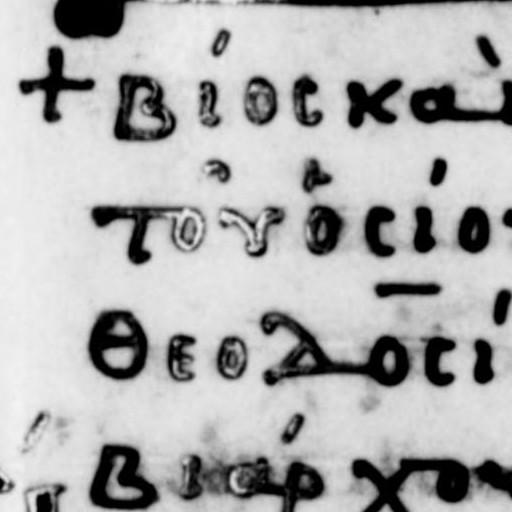 + Βίος κα
τοῦ ὁσίο
Θεοδοσί
Βιάρχο